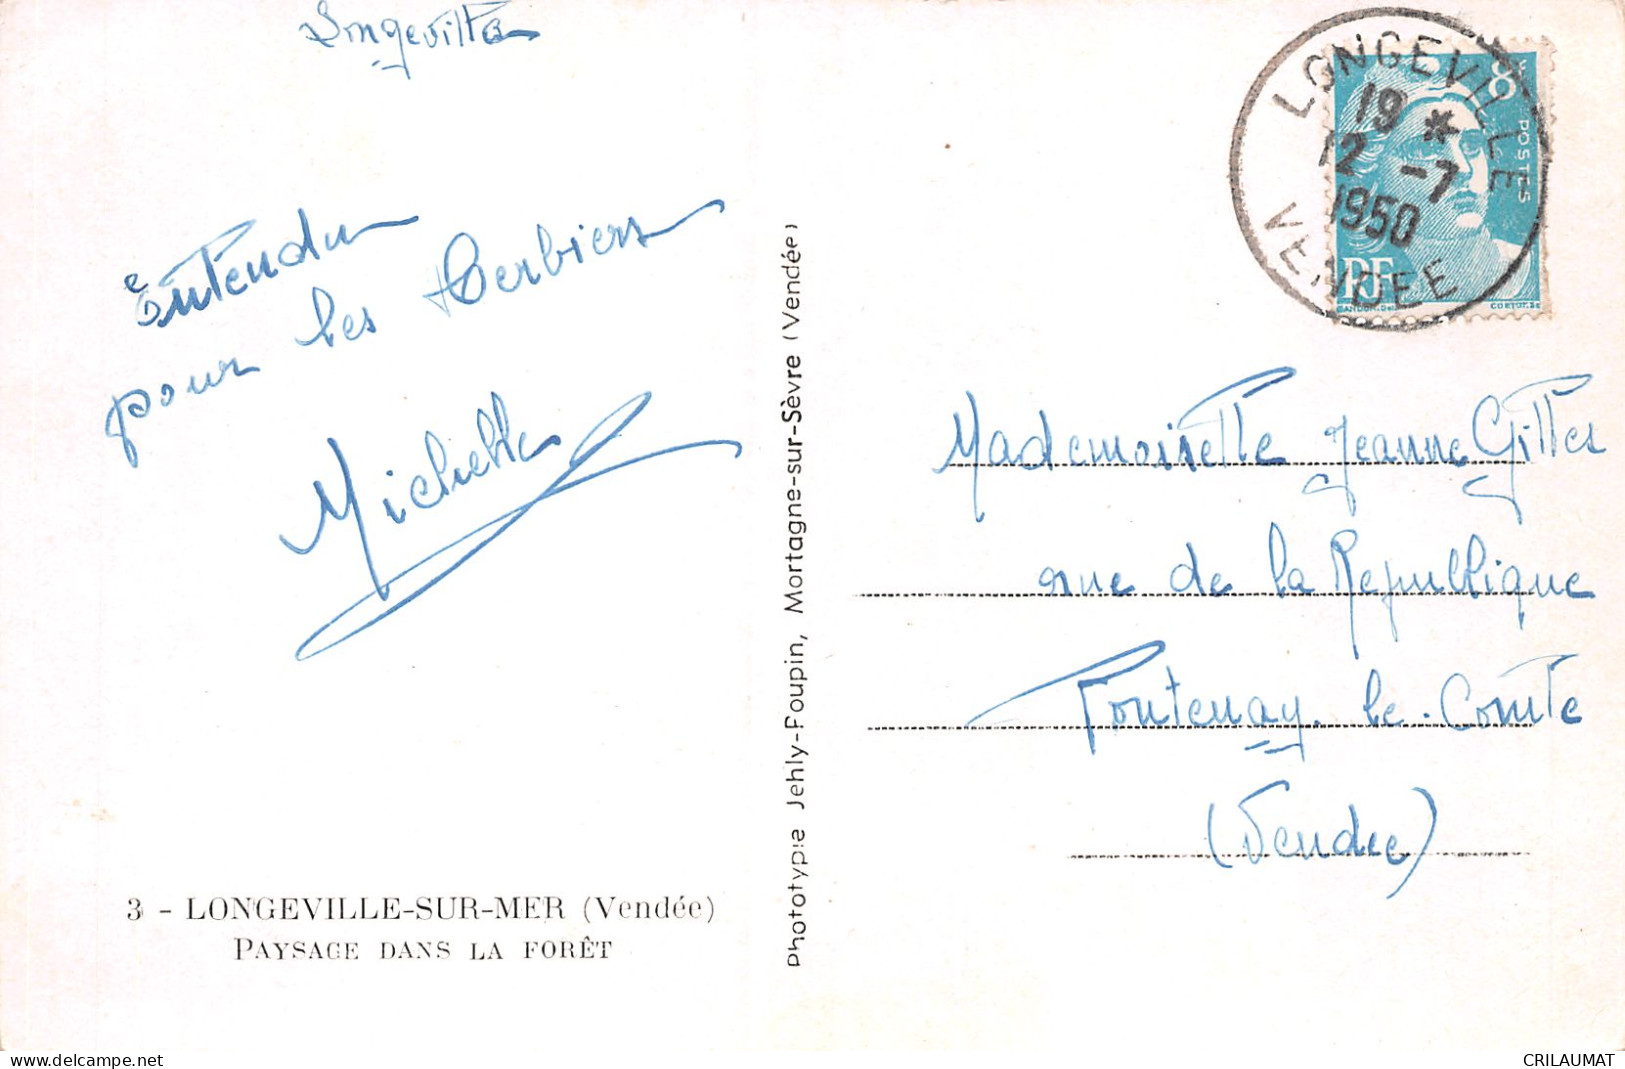 Longeville
Entendu
pour les Herbiers
Michelle
3 - LONGEVILLE-SUR-MER (Vendée)
PAYSAGE DANS LA FORÊT
Phototypie Jehly-Poupin, Mortagne-sur-Sèvre (Vendée)
LONGEVILLE
19 *
12 -7
1950
VENDEE
8F
POSTES
RF
GANDON.DEL
CORTOT.SC
Mademoiselle Jeanne Gilles
rue de la Republique
Fontenay-le-Comte
(Vendee)
delcampe.net
CRILAUMAT